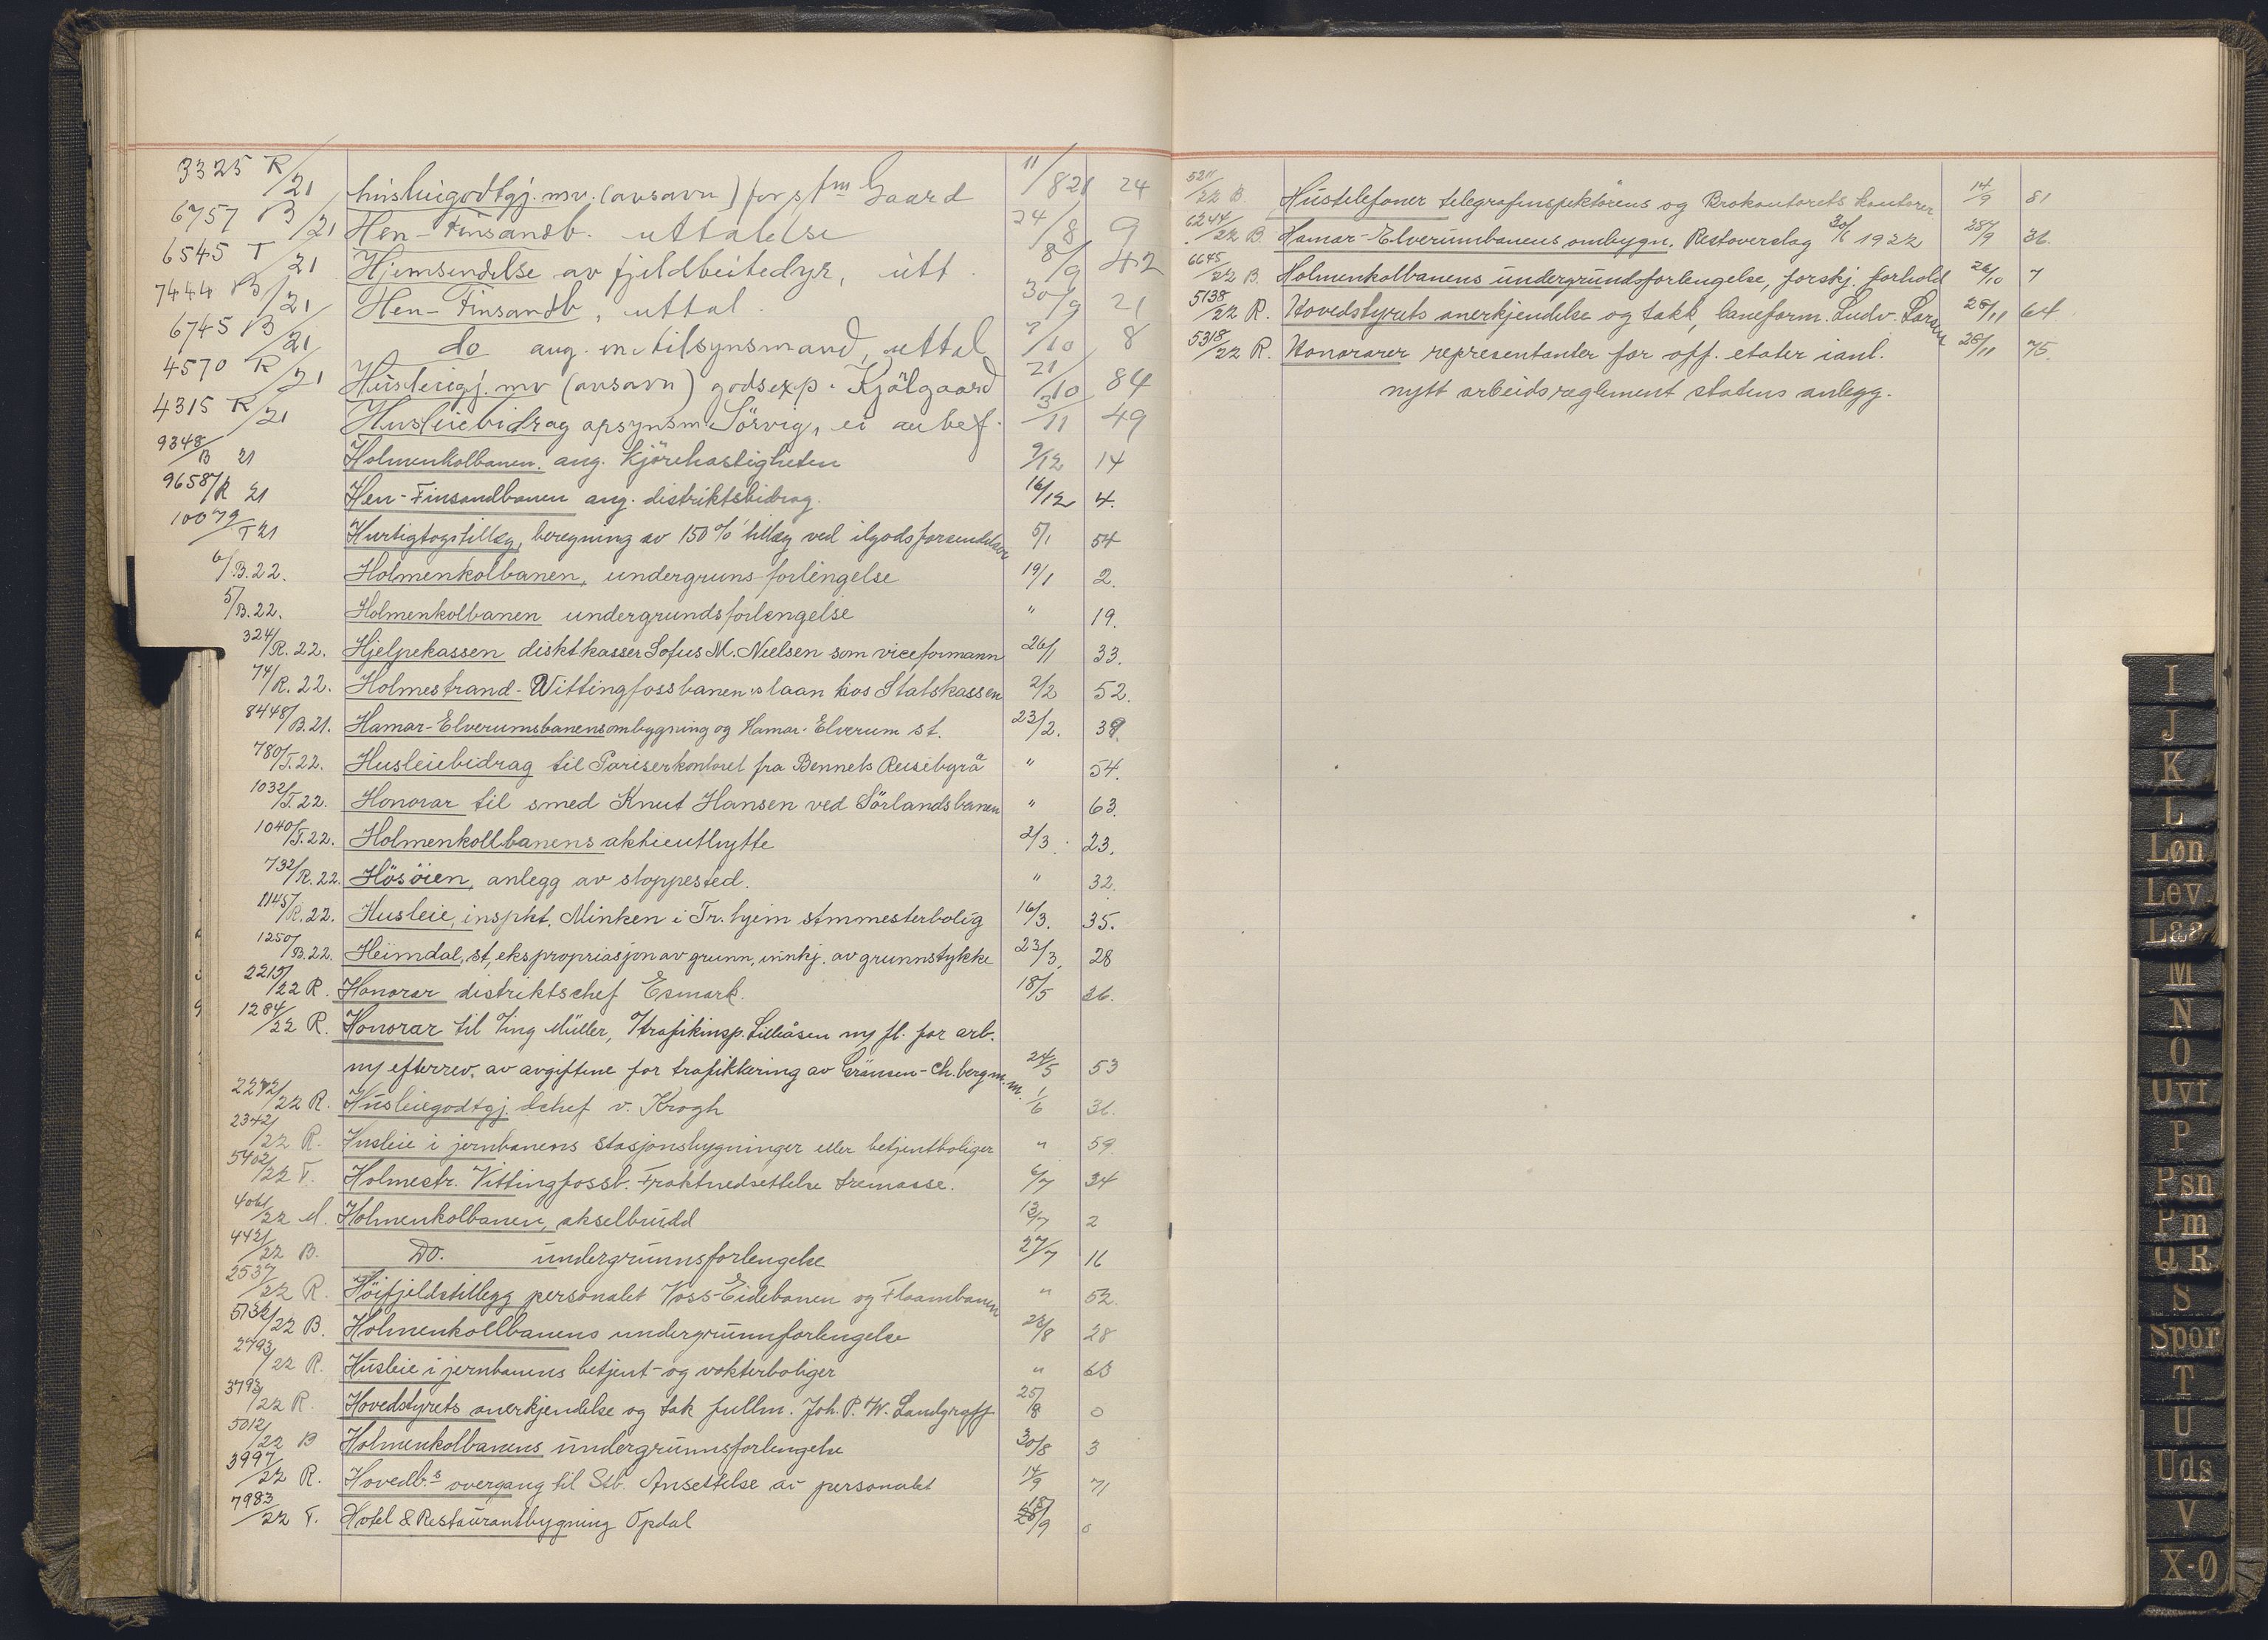 3325 R/21 husleiegodtgj. mv. (avsavn) for s/fm Gaard 11/8 21 24
6757 B/21 Hen-Finsandb. uttalelse 24/8 9
6545 T/21 Hjemsendelse av fjeldbeitedyr, utt. 8/9 42
7444 B/21 Hen-Finsandb, uttal. 30/9 21
6745 B/21 do ang. tilsynsmand, uttal 7/10 8
4570 R/21 Husleiegj. mv (avsavn) godsexp. Kjölgaard 21/10 84
4315 R/21 Husleiebidrag opsynsm Sörvig, ei anbef. 3/11 49
9348/B 21 Holmenkolbanen. ang. kjörehastigheten 9/12 14
9658/R 21 Hen-Finsandbanen ang. distriktsbidrag. 16/12 4.
10079/T 21 Hurtigtogstillæg, beregning av 150% tillæg ved ilgodsforsendelser 5/1 54
6/B.22. Holmenkolbanen, undergruns-forlengelse 19/1 2.
5/B.22. Holmenkolbanen undergrundsforlengelse " 19.
324/R.22. Hjelpekassen disktkasser Sofus M. Nielsen som viceformann 26/1 33.
74/R.22. Holmestrand-Vittingfossbanen's laan hos Statskassen 2/2 52.
8448/B.21. Hamar-Elverumsbanens ombygning og Hamar-Elverum st. 23/2. 39.
780/T.22. Husleiebidrag til Pariserkontoret fra Bennets Reisebyrå " 54.
1032/T.22. Honorar til smed Knut Hansen ved Sörlandsbanen " 63.
1040/T.22. Holmenkollbanens aktieutbytte 2/3. 23.
732/R.22. Hösöien, anlegg av stoppested. " 32.
1145/R.22. Husleie, inspkt. Minken i Tr.hjem stmmesterbolig 16/3. 35.
1250/B.22. Heimdal, st, ekspropriasjon av grunn, innkj. av grunnstykke 23/3. 28
2215/22 R. Honorar distriktschef Esmark. 18/5 26.
1284/22 R. Honorar til Ing Müller, Trafikinsp. Lilleåsen ny fl. for arb.
ny efterrev. av avgiftene for trafiktering av Grensen-Ch.berg m.m. 24/5 53
2272/22 R. Husleiegodtgj. dchef v. Krogh 1/6 36.
2342/22 R. Husleie i jernbanens stasjonsbygninger eller betjentboliger " 59.
5402/22 T. Holmestr. Vittingfossb. Fraktnedsettelse tremasse. 6/7 34
4061/22 M. Holmenkolbanen, akselbrudd 13/7 2
4421/22 B. Do. undergrunnsforlengelse 27/7 16
2537/22 R. Höifjeldstillegg personalet Voss-Eidebanen og Flaambanen " 52.
5132/22 B. Holmenkollbanens undergrunnforlengelse 23/8 28
2793/22 R. Husleie i jernbanens betjent- og vokterboliger " 63
3793/22 R. Hovedstyrets anerkjendelse og tak fullm. Joh. P. W. Landgraff 25/8 0
5012/22 B Holmenkolbanens undergrunnsforlengelse 30/8 3
3997/22 R. Hovedb.s overgang til Stb. Ansettelse av personalet 14/9 71
7983/22 T. Hotel & Restaurantbygning Opdal 0
5211/22 B. Hustelefoner telegrafinspektörens og Brokontorets kontorer 14/9 81
6244/22 B. Hamar-Elverumbanens ombygn. Restoverslag 30/6 1922 28/9 36.
6645/22 B. Holmenkolbanens undergrundsforlengelse, forskj. forhold 26/10 7
5138/22 R. Hovedstyrets anerkjendelse og takk, baneform. Ludv. Larsen 28/11 64
5318/22 R. Honorarer representanter for off. etater ianl. 28/11 75.
nytt arbeidsreglement statens anlegg.
I
J
K
L
Løn
Lev.
Laa
M
N
O
Ovf
P
Psn
Pm
Q R
S
Spor
T
U
Uds
V
X-Ø